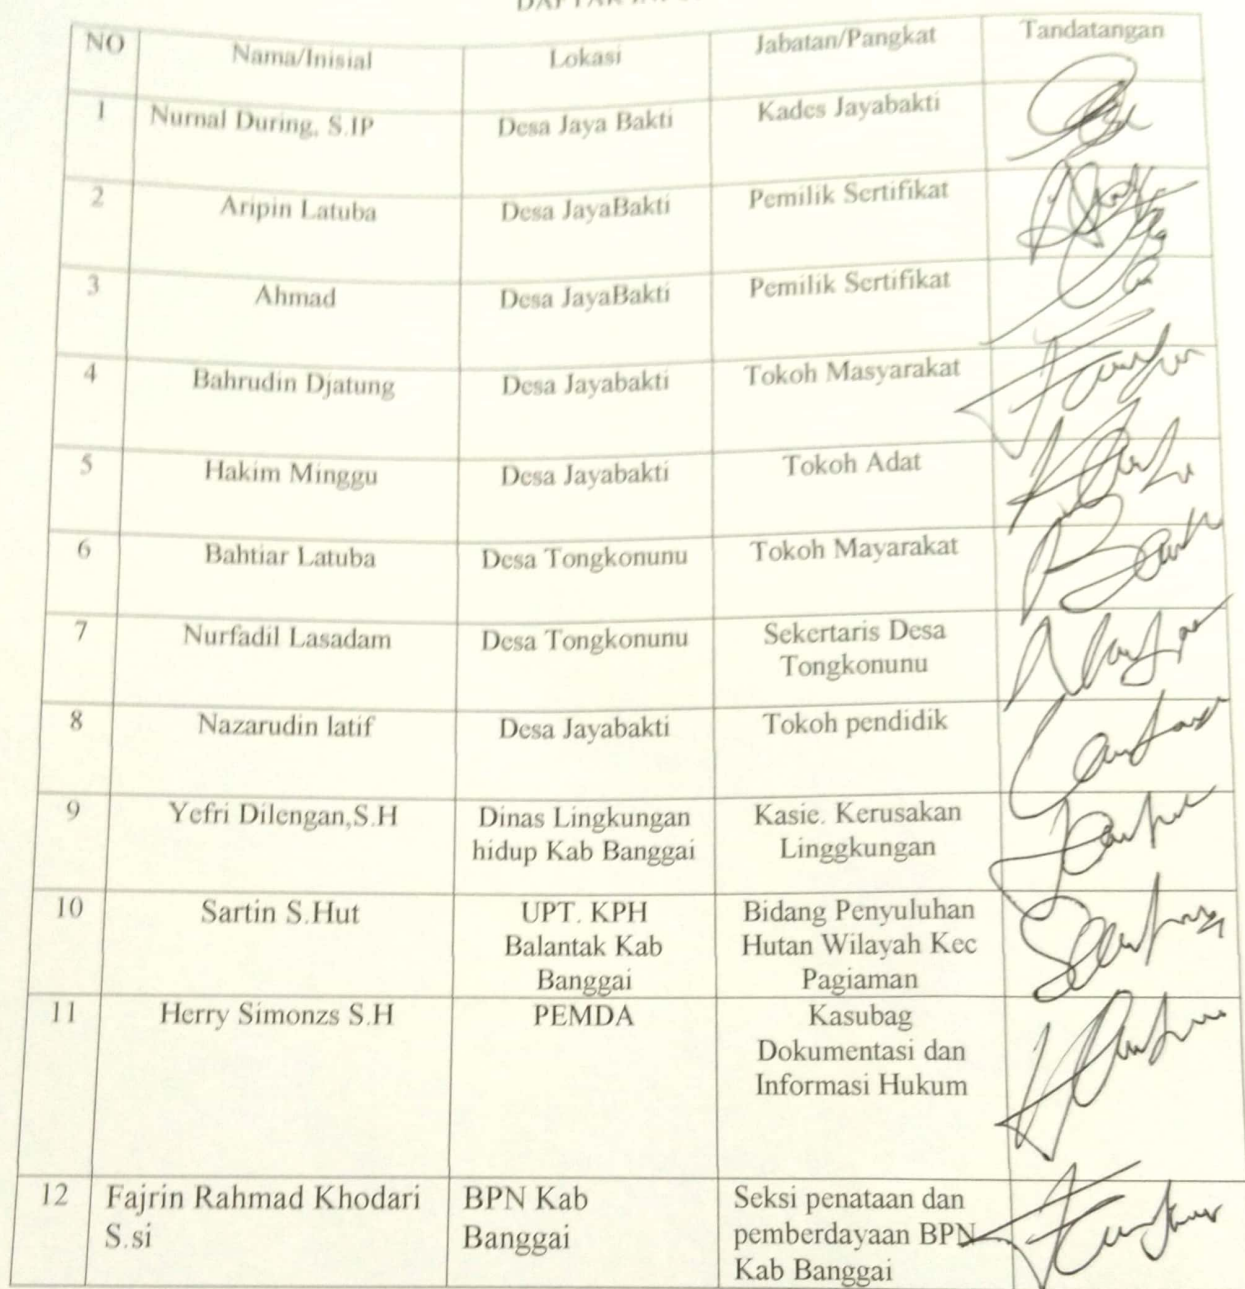 NO Nama/Inisial Lokasi Jabatan/Pangkat Tandatangan
1 Nurnal During, S.IP Desa Jaya Bakti Kades Jayabakti
2 Aripin Latuba Desa JayaBakti Pemilik Sertifikat
3 Ahmad Desa JayaBakti Pemilik Sertifikat
4 Bahrudin Djatung Desa Jayabakti Tokoh Masyarakat
5 Hakim Minggu Desa Jayabakti Tokoh Adat
6 Bahtiar Latuba Desa Tongkonunu Tokoh Mayarakat
7 Nurfadil Lasadam Desa Tongkonunu Sekertaris Desa
Tongkonunu
8 Nazarudin latif Desa Jayabakti Tokoh pendidik
9 Yefri Dilengan,S.H Dinas Lingkungan Kasie. Kerusakan
hidup Kab Banggai Linggkungan
10 Sartin S.Hut UPT. KPH Bidang Penyuluhan
Balantak Kab Hutan Wilayah Kec
Banggai Pagiaman
11 Herry Simonzs S.H PEMDA Kasubag
Dokumentasi dan
Informasi Hukum
12 Fajrin Rahmad Khodari BPN Kab Seksi penataan dan
S.si Banggai pemberdayaan BPN
Kab Banggai